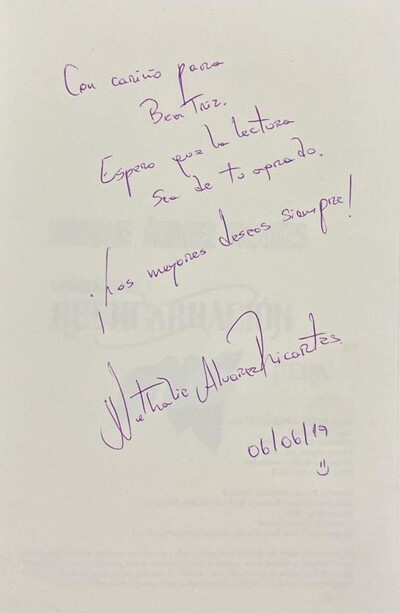 Con cariño para
Beatriz.
Espero que la lectura
sea de tu agrado.
¡Los mejores deseos siempre!
Nathalie Alvarez Ricartes
06/06/19